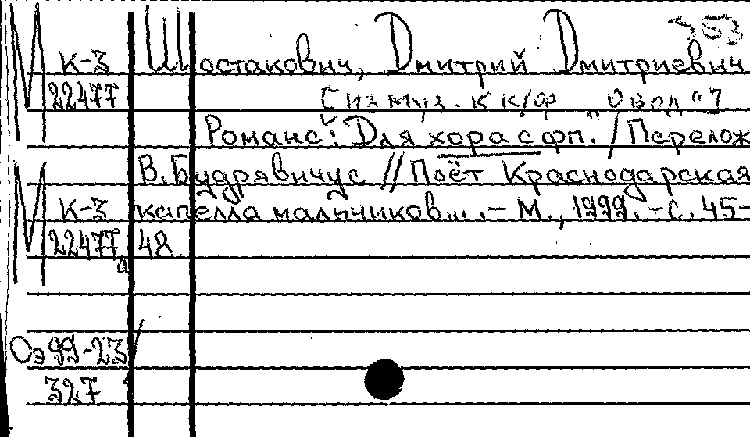 353
М К-3 Шостакович, Дмитрий Дмитриевич
22477 [Из муз. к к/ф „Овод"]
Романс: Для хора с фп. / Перелож
В. Будрявичус // Поёт Краснодарская
М К-3 капелла мальчиков... .- М., 1999. - С. 45-
22477а 48
Оэ 99-23/
327